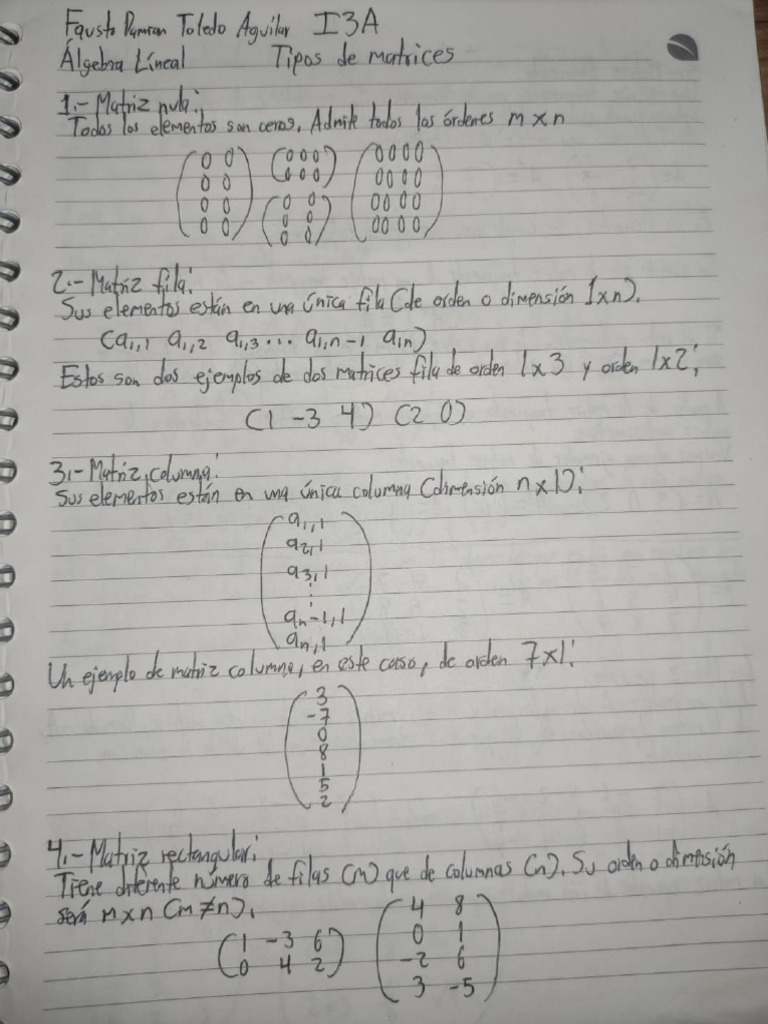 Fausto Damian Toledo Aguilar I3A
Álgebra Líneal Tipos de matrices
1.- Matriz nula:
Todos los elementos son ceros. Admite todos los órdenes m x n
0 0 0 0 0 0 0 0 0
0 0 0 0 0 0 0 0 0
0 0 0 0 0 0 0 0
0 0 0 0 0 0 0 0
0 0
2.- Matriz fila:
Sus elementos están en una única fila (de orden o dimensión 1xn).
(a1,1 a1,2 a1,3 ... a1,n-1 a1n)
Estos son dos ejemplos de dos matrices fila de orden 1x3 y orden 1x2:
(1 -3 4) (2 0)
3.- Matriz columna:
Sus elementos están en una única columna (dimensión nx1):
a1,1
a2,1
a3,1
⋮
an-1,1
an,1
Un ejemplo de matriz columna, en este caso, de orden 7x1:
3
-7
0
8
1
5
2
4.- Matriz rectangular:
Tiene diferente número de filas (m) que de columnas (n). Su orden o dimensión
será mxn (m≠n).
4 8
(1 -3 6) 0 1
0 4 2 -2 6
3 -5